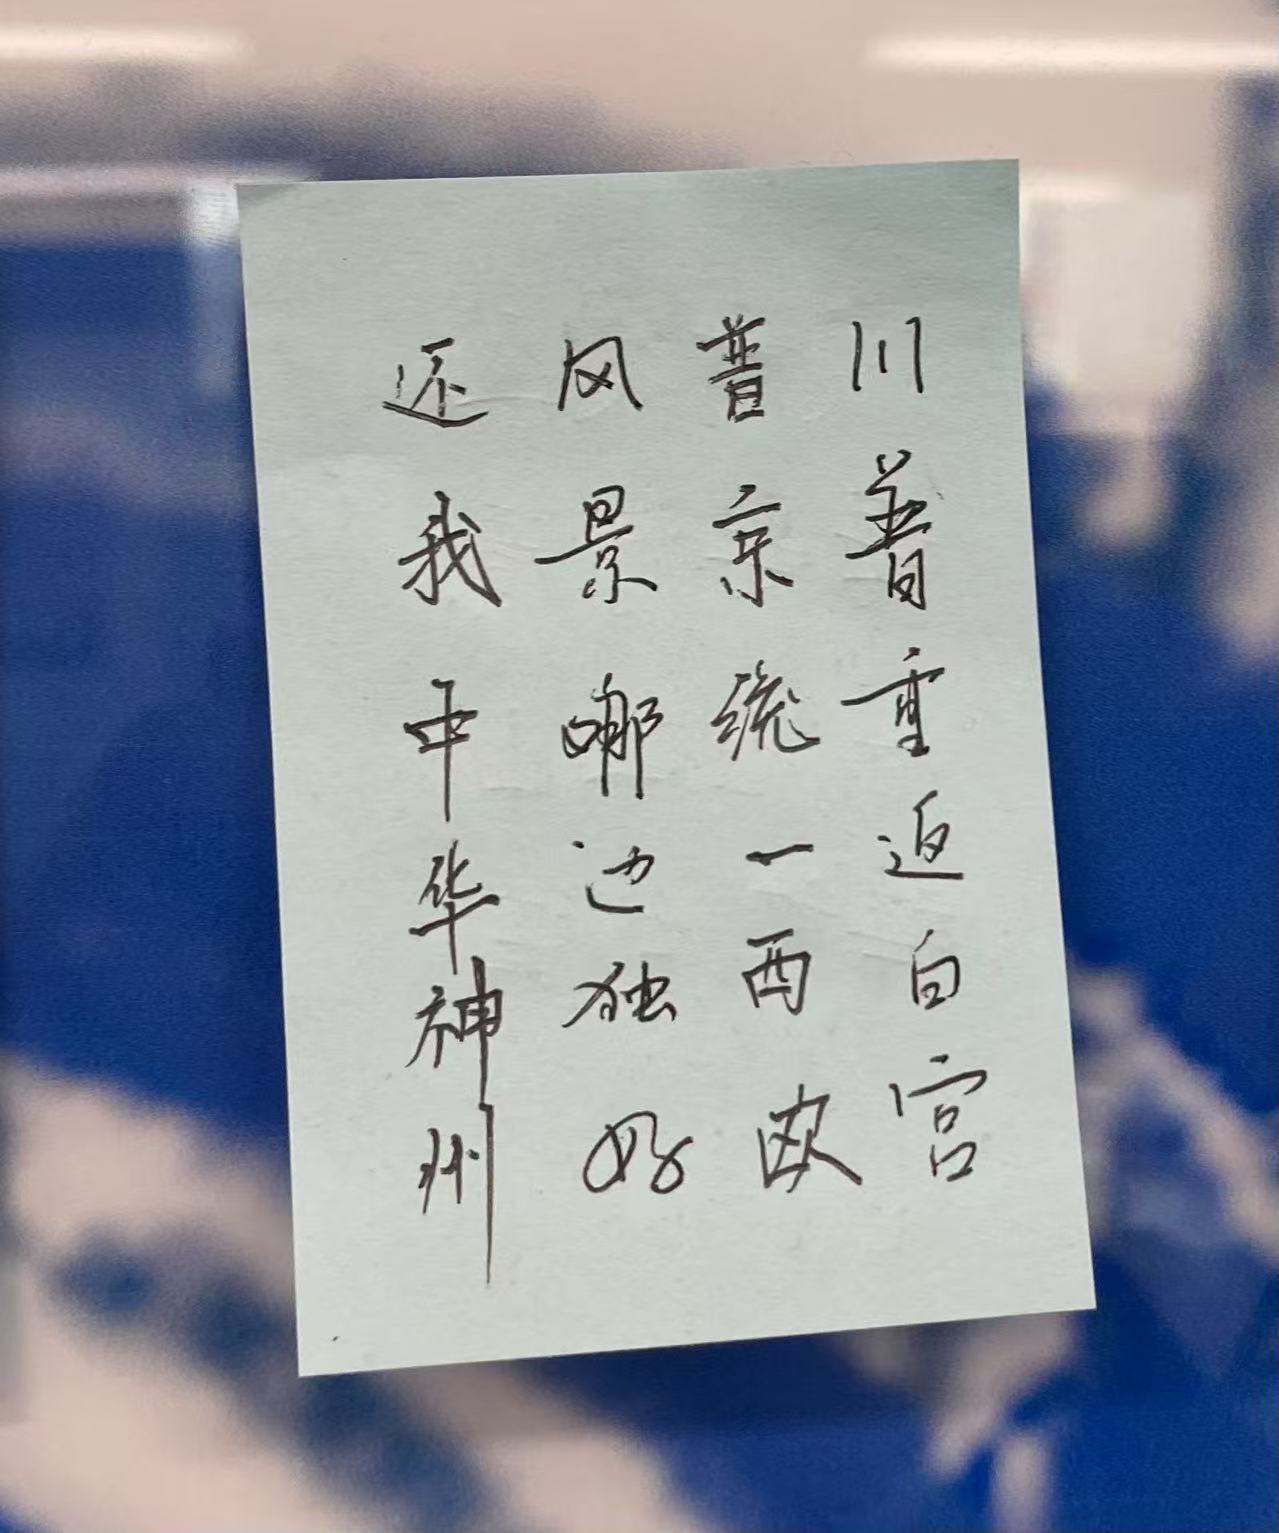 川普重返白宫
普京统一西欧
风景哪边独好
还我中华神州